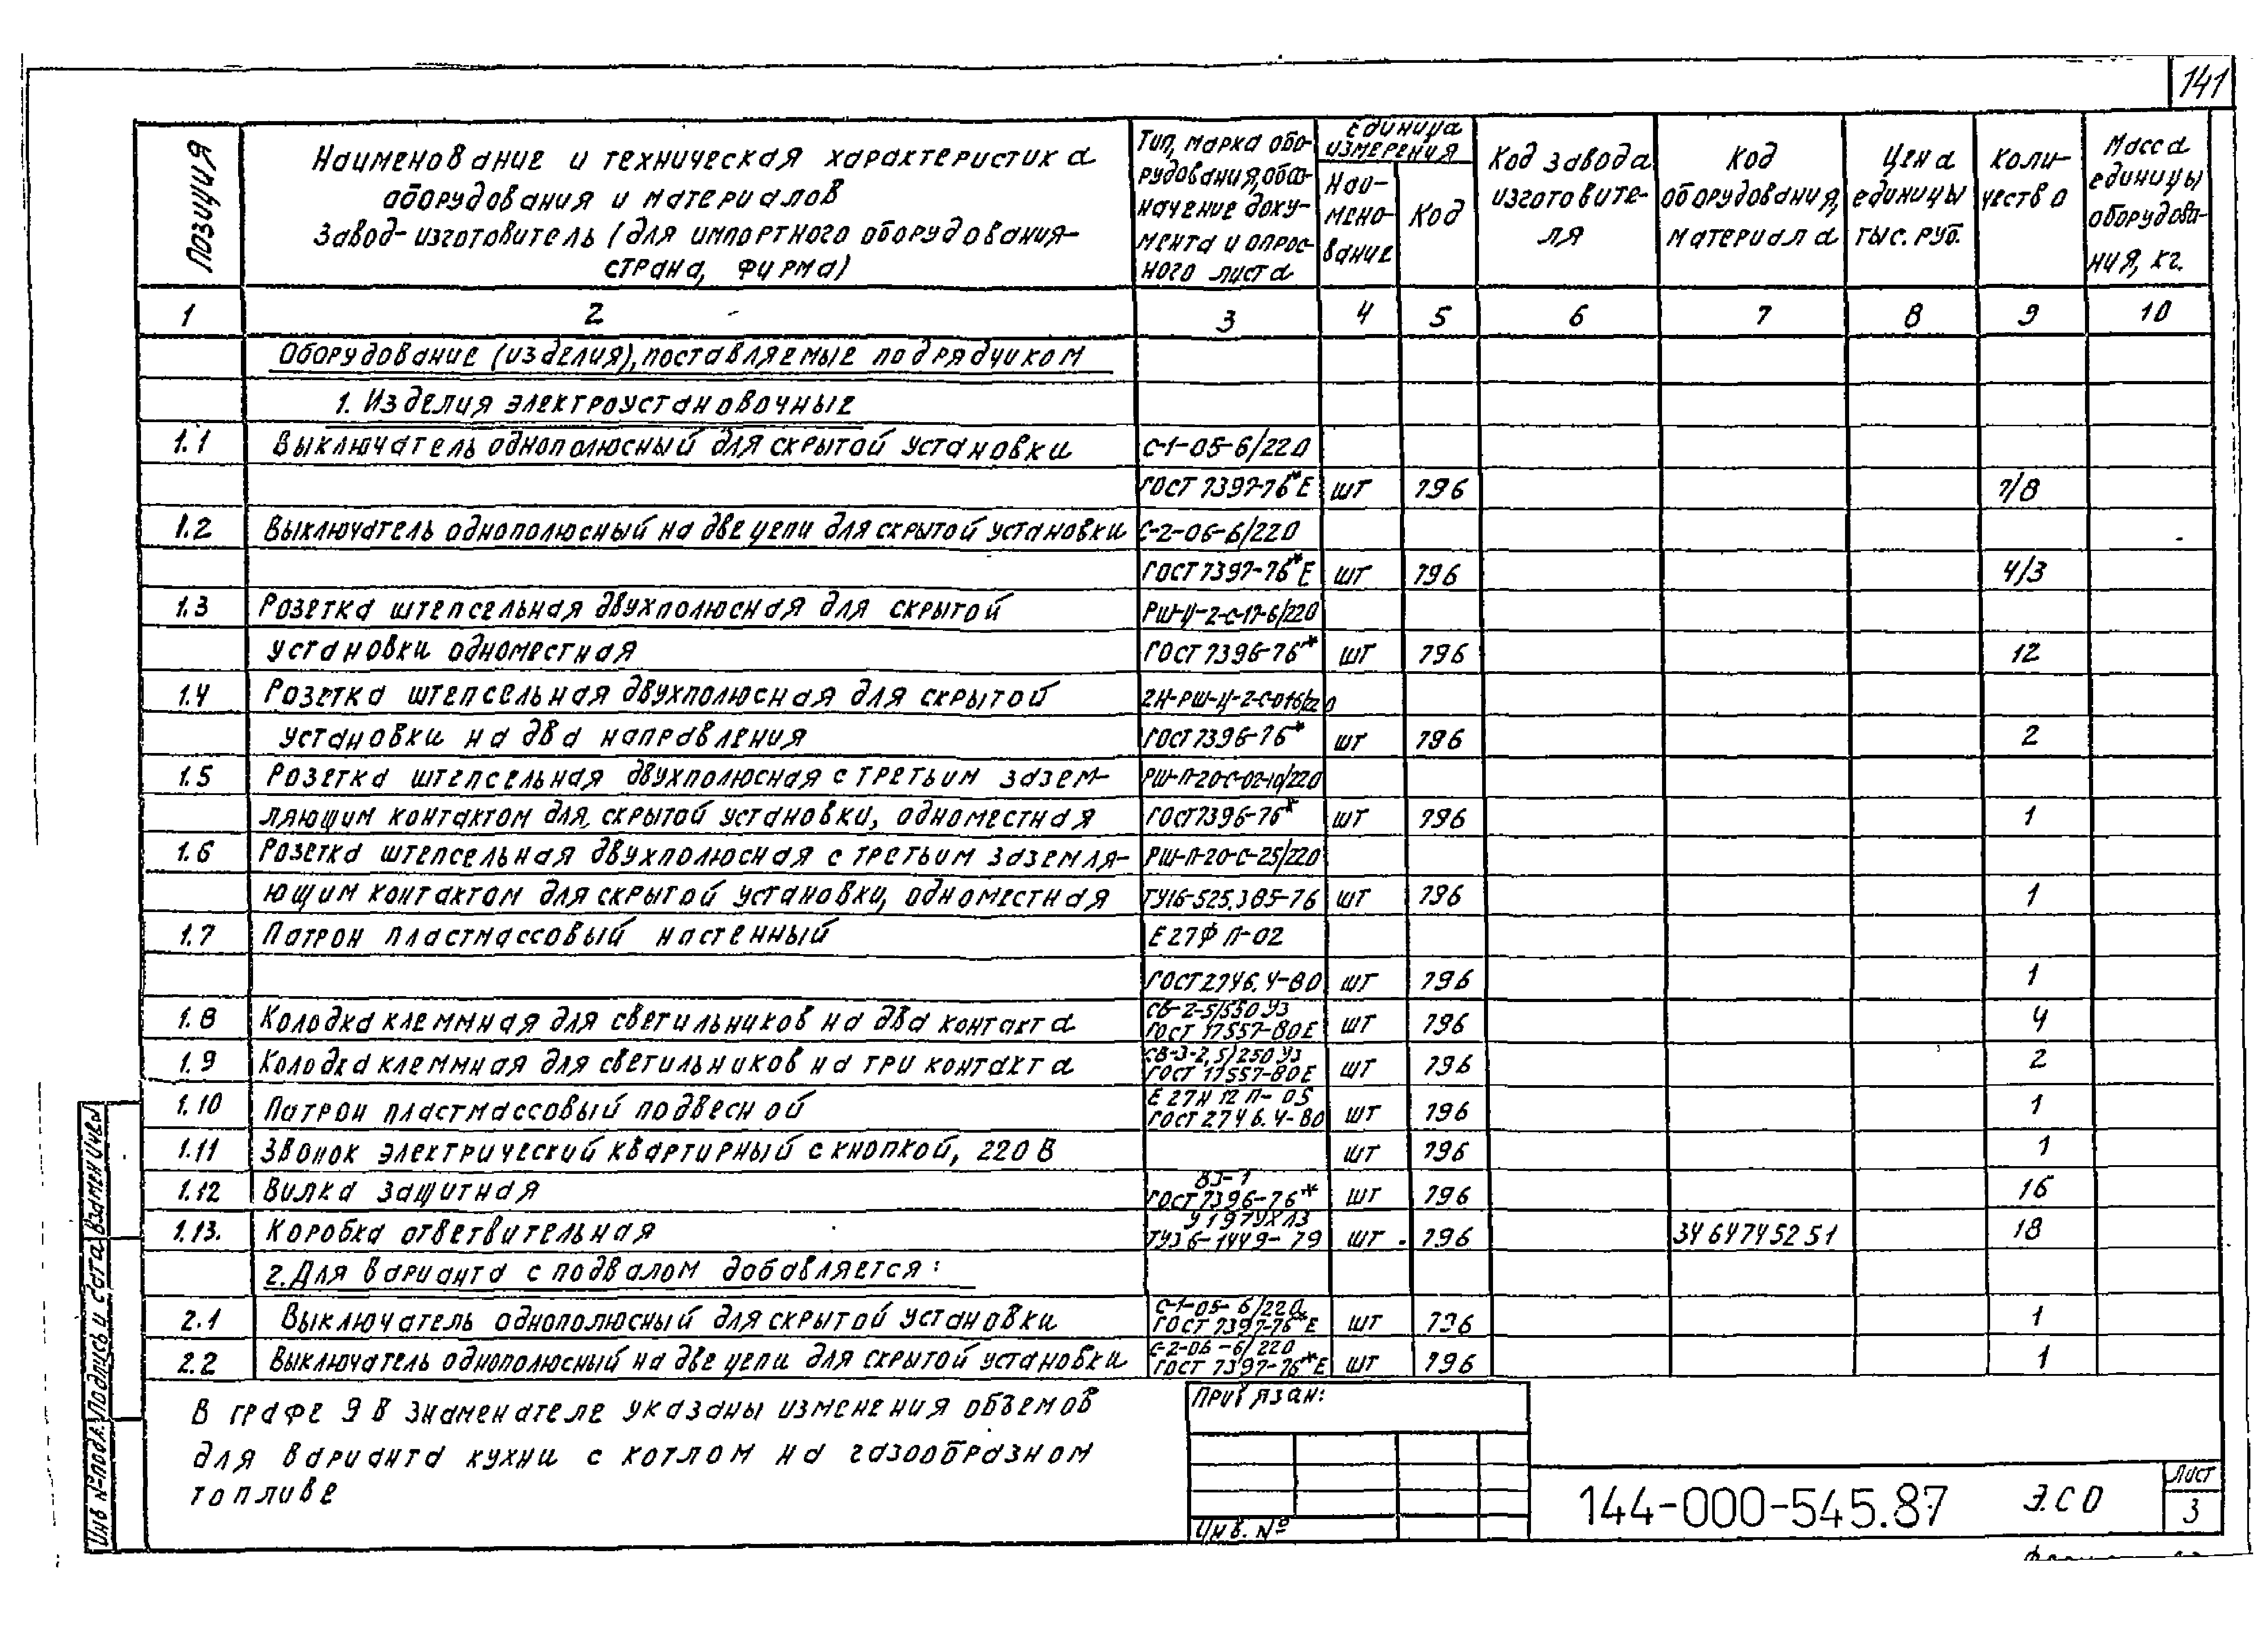 141
Позиция
Наименование и техническая характеристика
оборудования и материалов
Завод-изготовитель (для импортного оборудования-
страна, фирма)
Тип, марка обо-
рудования, обоз-
начение доку-
мента и опрос-
ного листа
Единица
измерения
Наи-
мено-
вание
Код
Код завода
изготовите-
ля
Код
оборудования,
материала
Цена
единицы
тыс. руб.
Коли-
чество
Масса
единицы
оборудова-
ния, кг.
1 2 3 4 5 6 7 8 9 10
Оборудование (изделия), поставляемые подрядчиком
1. Изделия электроустановочные
1.1 Выключатель однополюсный для скрытой установки С-1-05-6/220
ГОСТ 7397-76*Е шт 796 7/8
1.2 Выключатель однополюсный на две цепи для скрытой установки С-2-06-6/220
ГОСТ 7397-76*Е шт 796 4/3
1.3 Розетка штепсельная двухполюсная для скрытой РШ-Ц-2-С-17-6/220
установки одноместная ГОСТ 7396-76* шт 796 12
1.4 Розетка штепсельная двухполюсная для скрытой
установки на два направления ГОСТ 7396-76* шт 796 2
1.5 Розетка штепсельная двухполюсная с третьим зазем- РШ-П-20-С-02-10/220
ляющим контактом для скрытой установки, одноместная ГОСТ 7396-76* шт 796 1
1.6 Розетка штепсельная двухполюсная с третьим заземля- РШ-П-20-С-25/220
ющим контактом для скрытой установки, одноместная ТУ16-525.385-76 шт 796 1
1.7 Патрон пластмассовый настенный Е27ФП-02
ГОСТ 2746.4-80 шт 796 1
1.8 Колодка клеммная для светильников на два контакта шт 796 4
ГОСТ 17557-80Е
1.9 Колодка клеммная для светильников на три контакта СВ-3-2,5/250 У3 шт 796 2
ГОСТ 17557-80Е
1.10 Патрон пластмассовый подвесной Е27Н12П-05 шт 796 1
ГОСТ 2746.4-80
1.11 Звонок электрический квартирный с кнопкой, 220 В шт 796 1
1.12 Вилка защитная ВЗ-1 шт 796 16
ГОСТ 7396-76*
1.13. Коробка ответвительная У197УХЛ3 шт. 796 3464745251 18
ТУ36-1449-79
2. Для варианта с подвалом добавляется:
2.1 Выключатель однополюсный для скрытой установки С-1-05-6/220 шт 796 1
ГОСТ 7397-76*Е
2.2 Выключатель однополюсный на две цепи для скрытой установки С-2-06-6/220 шт 796 1
ГОСТ 7397-76*Е
В графе 9 в знаменателе указаны изменения объемов
для варианта кухни с котлом на газообразном
топливе
Привязан:
Инв. №
144-000-545.87 Э.СО
Лист
3
Инв № подл. Подпись и дата Взамен Инв №